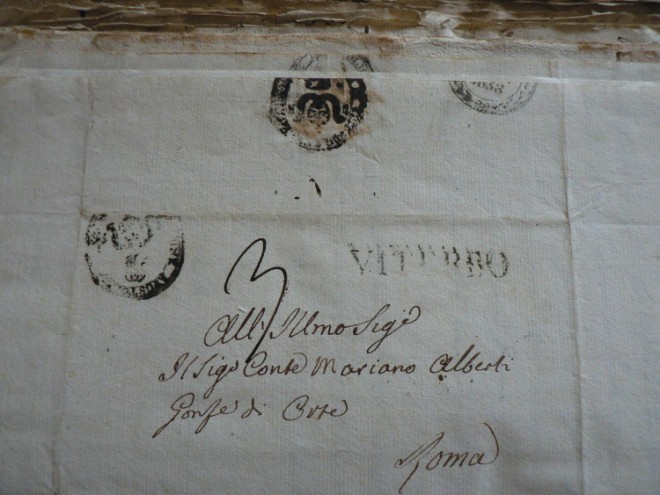 VITERBO
3
All' Illmo Sigr
Il Sigr Conte Mariano Alberti
Gonfe di Orte
Roma